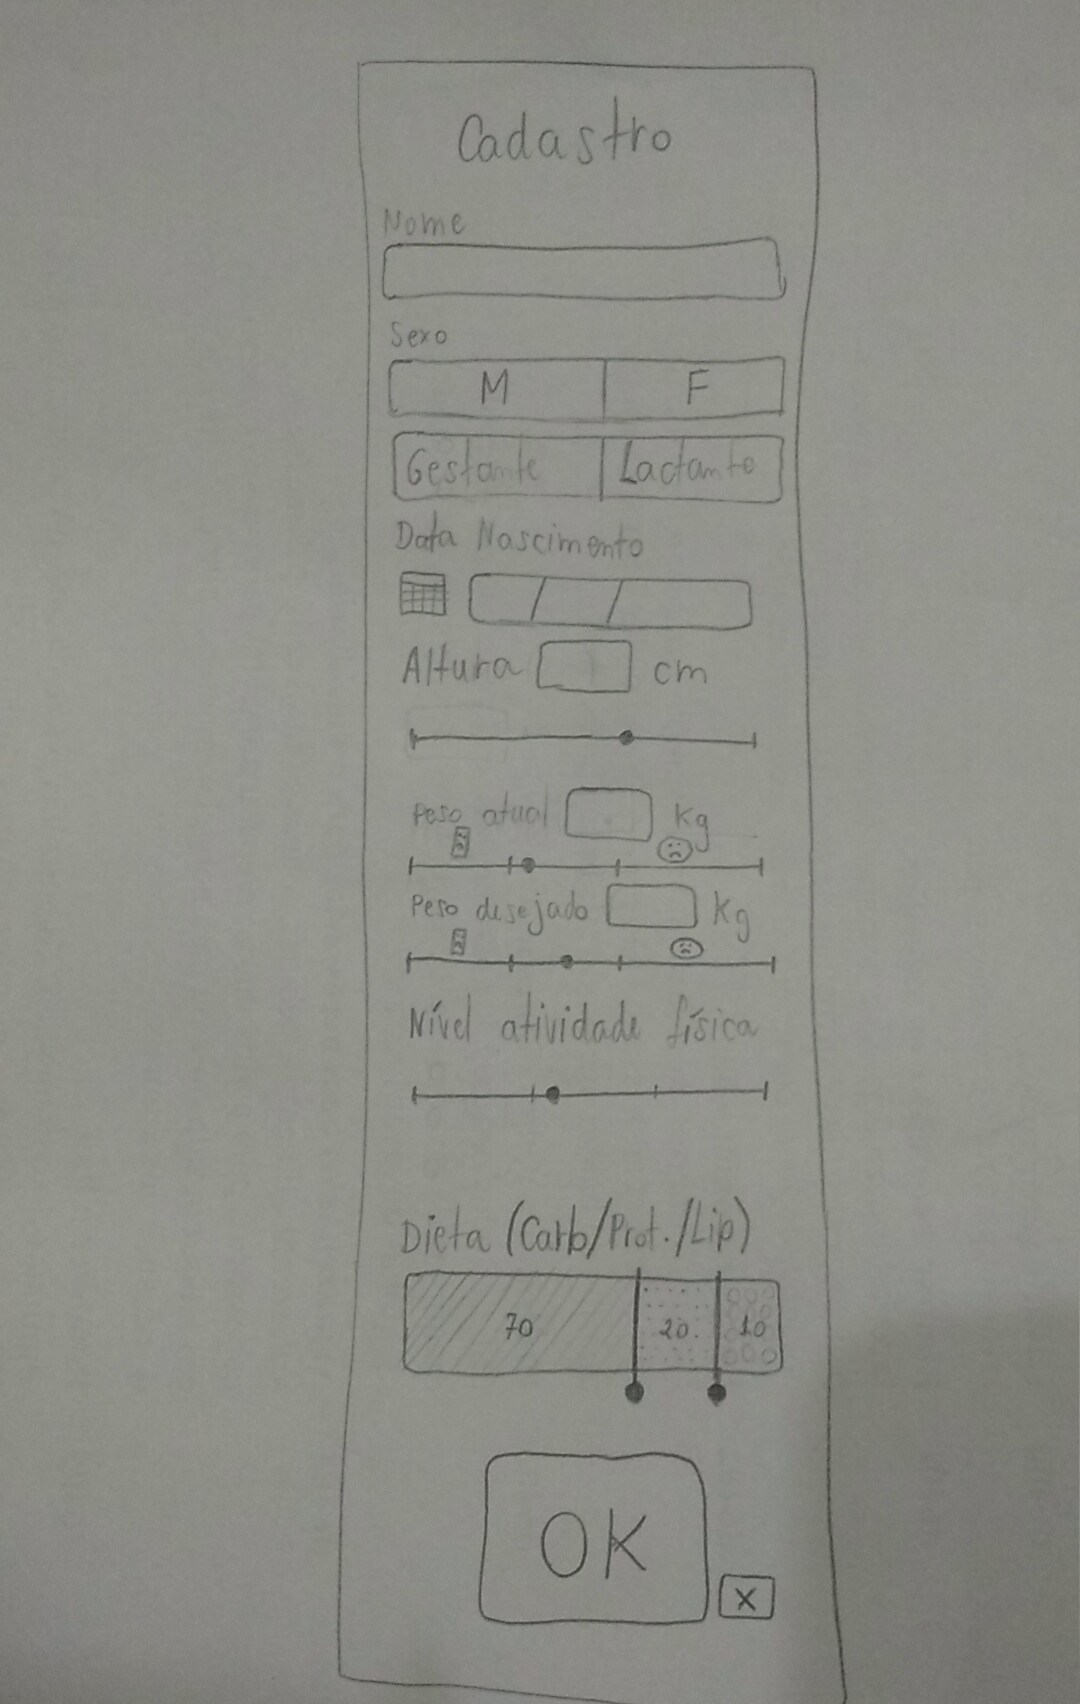 Cadastro
Nome
Sexo
M F
Gestante Lactante
Data Nascimento
/ /
Altura cm
Peso atual Kg
Peso desejado Kg
Nível atividade física
Dieta (Carb/Prot./Lip)
70 20. 10
OK
X